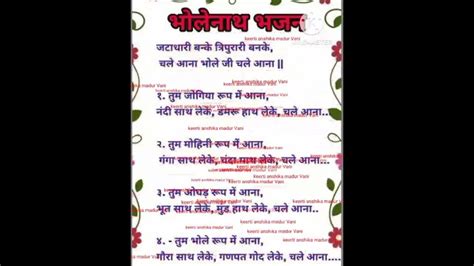 भोलेनाथ भजन
जटाधारी बन्के त्रिपुरारी बनके,
चले आना भोले जी चले आना ||
keerti anshika madur Vani
१. तुम जोगिया रूप में आना,
नंदी साथ लेके, डमरू हाथ लेके, चले आना..
keerti anshika madur Vani
२. तुम मोहिनी रूप में आना,
गंगा साथ लेके, चंदा साथ लेके, चले आना..
keerti anshika madur Vani
३. तुम ओघड़ रूप में आना,
भूत साथ लेके, मुंड हाथ लेके, चले आना..
keerti anshika madur Vani
४. - तुम भोले रूप में आना,
गौरा साथ लेके, गणपत गोद लेके, चले आना..